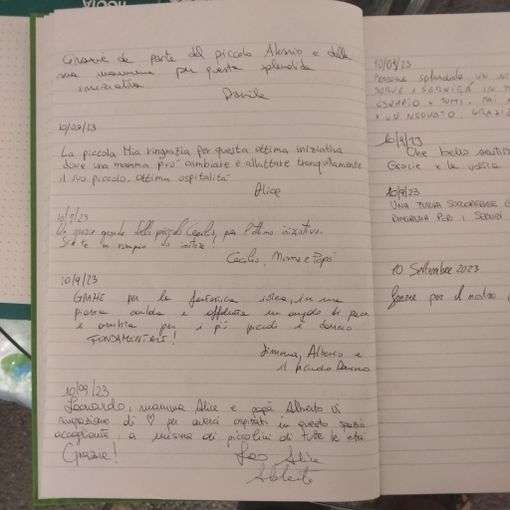 Grazie da parte del piccolo Alessio e della
sua mamma per questa splendida
iniziativa
Daniela
10/09/23
La piccola Mia ringrazia per questa ottima iniziativa
dove una mamma può cambiare e allattare tranquillamente
il suo piccolo. Ottima ospitalità
Alice
10/9/23
Un grazie grande dalla piccola Cecilia, per l'ottima iniziativa.
Siete un esempio da imitare!
Cecilia, Mamma e Papà
10/9/23
GRAZIE per la fantastica idea, in una
piazza calda e affollata un angolo di pace
e ombra per i più piccoli è davvero
FONDAMENTALE!
Alberto e
il piccolo
10/09/23
Leonardo, mamma Alice e papà Alberto vi
ringraziano di ♡ per averci ospitati in questo spazio
accogliente, a misura di piccolini di tutte le età
Grazie!
Leo Alice
Alberto
10/09/23
Persone splendide un
ESEMPIO x TUTTI.
x UN NEONATO. GRAZIE
10/9/23
Che bello
Grazie x la vostra
10/9/23
UNA TURISTA
RINGRAZIA PER I SERVIZI
10 Settembre 2023
Grazie per il nostro